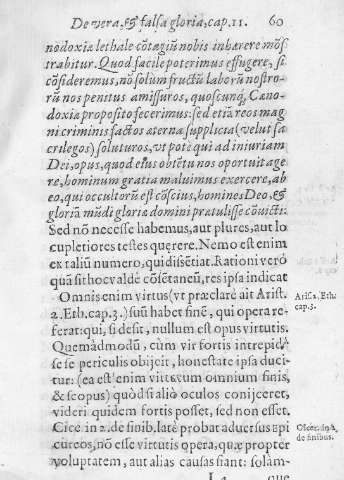 De vera, & falsa gloria, cap. 11. 60
nodoxiæ lethale cõtagiũ nobis inhærere mõs
trabitur. Quod facile poterimus effugere, si
cõsideremus, nõ solum fructũ laborũ nostro-
rũ nos penitus amissuros, quoscunq; Cæno-
doxiæ proposito fecerimus: sed etiã reos mag
ni criminis factos æterna supplicia (velut sa
crilegos) soluturos, vt pote qui ad iniuriam
Dei, opus, quod eius obtẽtu nos oportuit age
re, hominum gratia maluimus exercere, ab
eo, qui occultorũ est cõscius, homines Deo, &
gloriã mũdi gloriæ domini prætulisse cõuicti:
Sed nõ necesse habemus, aut plures, aut lo
cupletiores testes quęrere. Nemo est enim
ex taliũ numero, qui dissẽtiat. Rationi verò
quã sit hoc valdè cõsẽtaneũ, res ipsa indicat
Omnis enim virtus (vt præclarè ait Arist.
2. Eth. cap. 3.) suũ habet finẽ, qui opera re-
ferat: qui, si desit, nullum est opus virtutis.
Quemadmodũ, cùm vir fortis intrepidè
se se periculis obijcit, honestate ipsa duci-
tur: (ea est enim virtutum omnium finis,
& scopus) quòd si aliò oculos conijceret,
videri quidem fortis posset, sed non esset.
Cice in 2. de finib. latè probat aduersus Epi
cureos, nõ esse virtutis opera, quæ propter
voluptatem, aut alias causas fiant: solùm-
que
Aris. 2. Eth.
cap. 3.
de finibus.